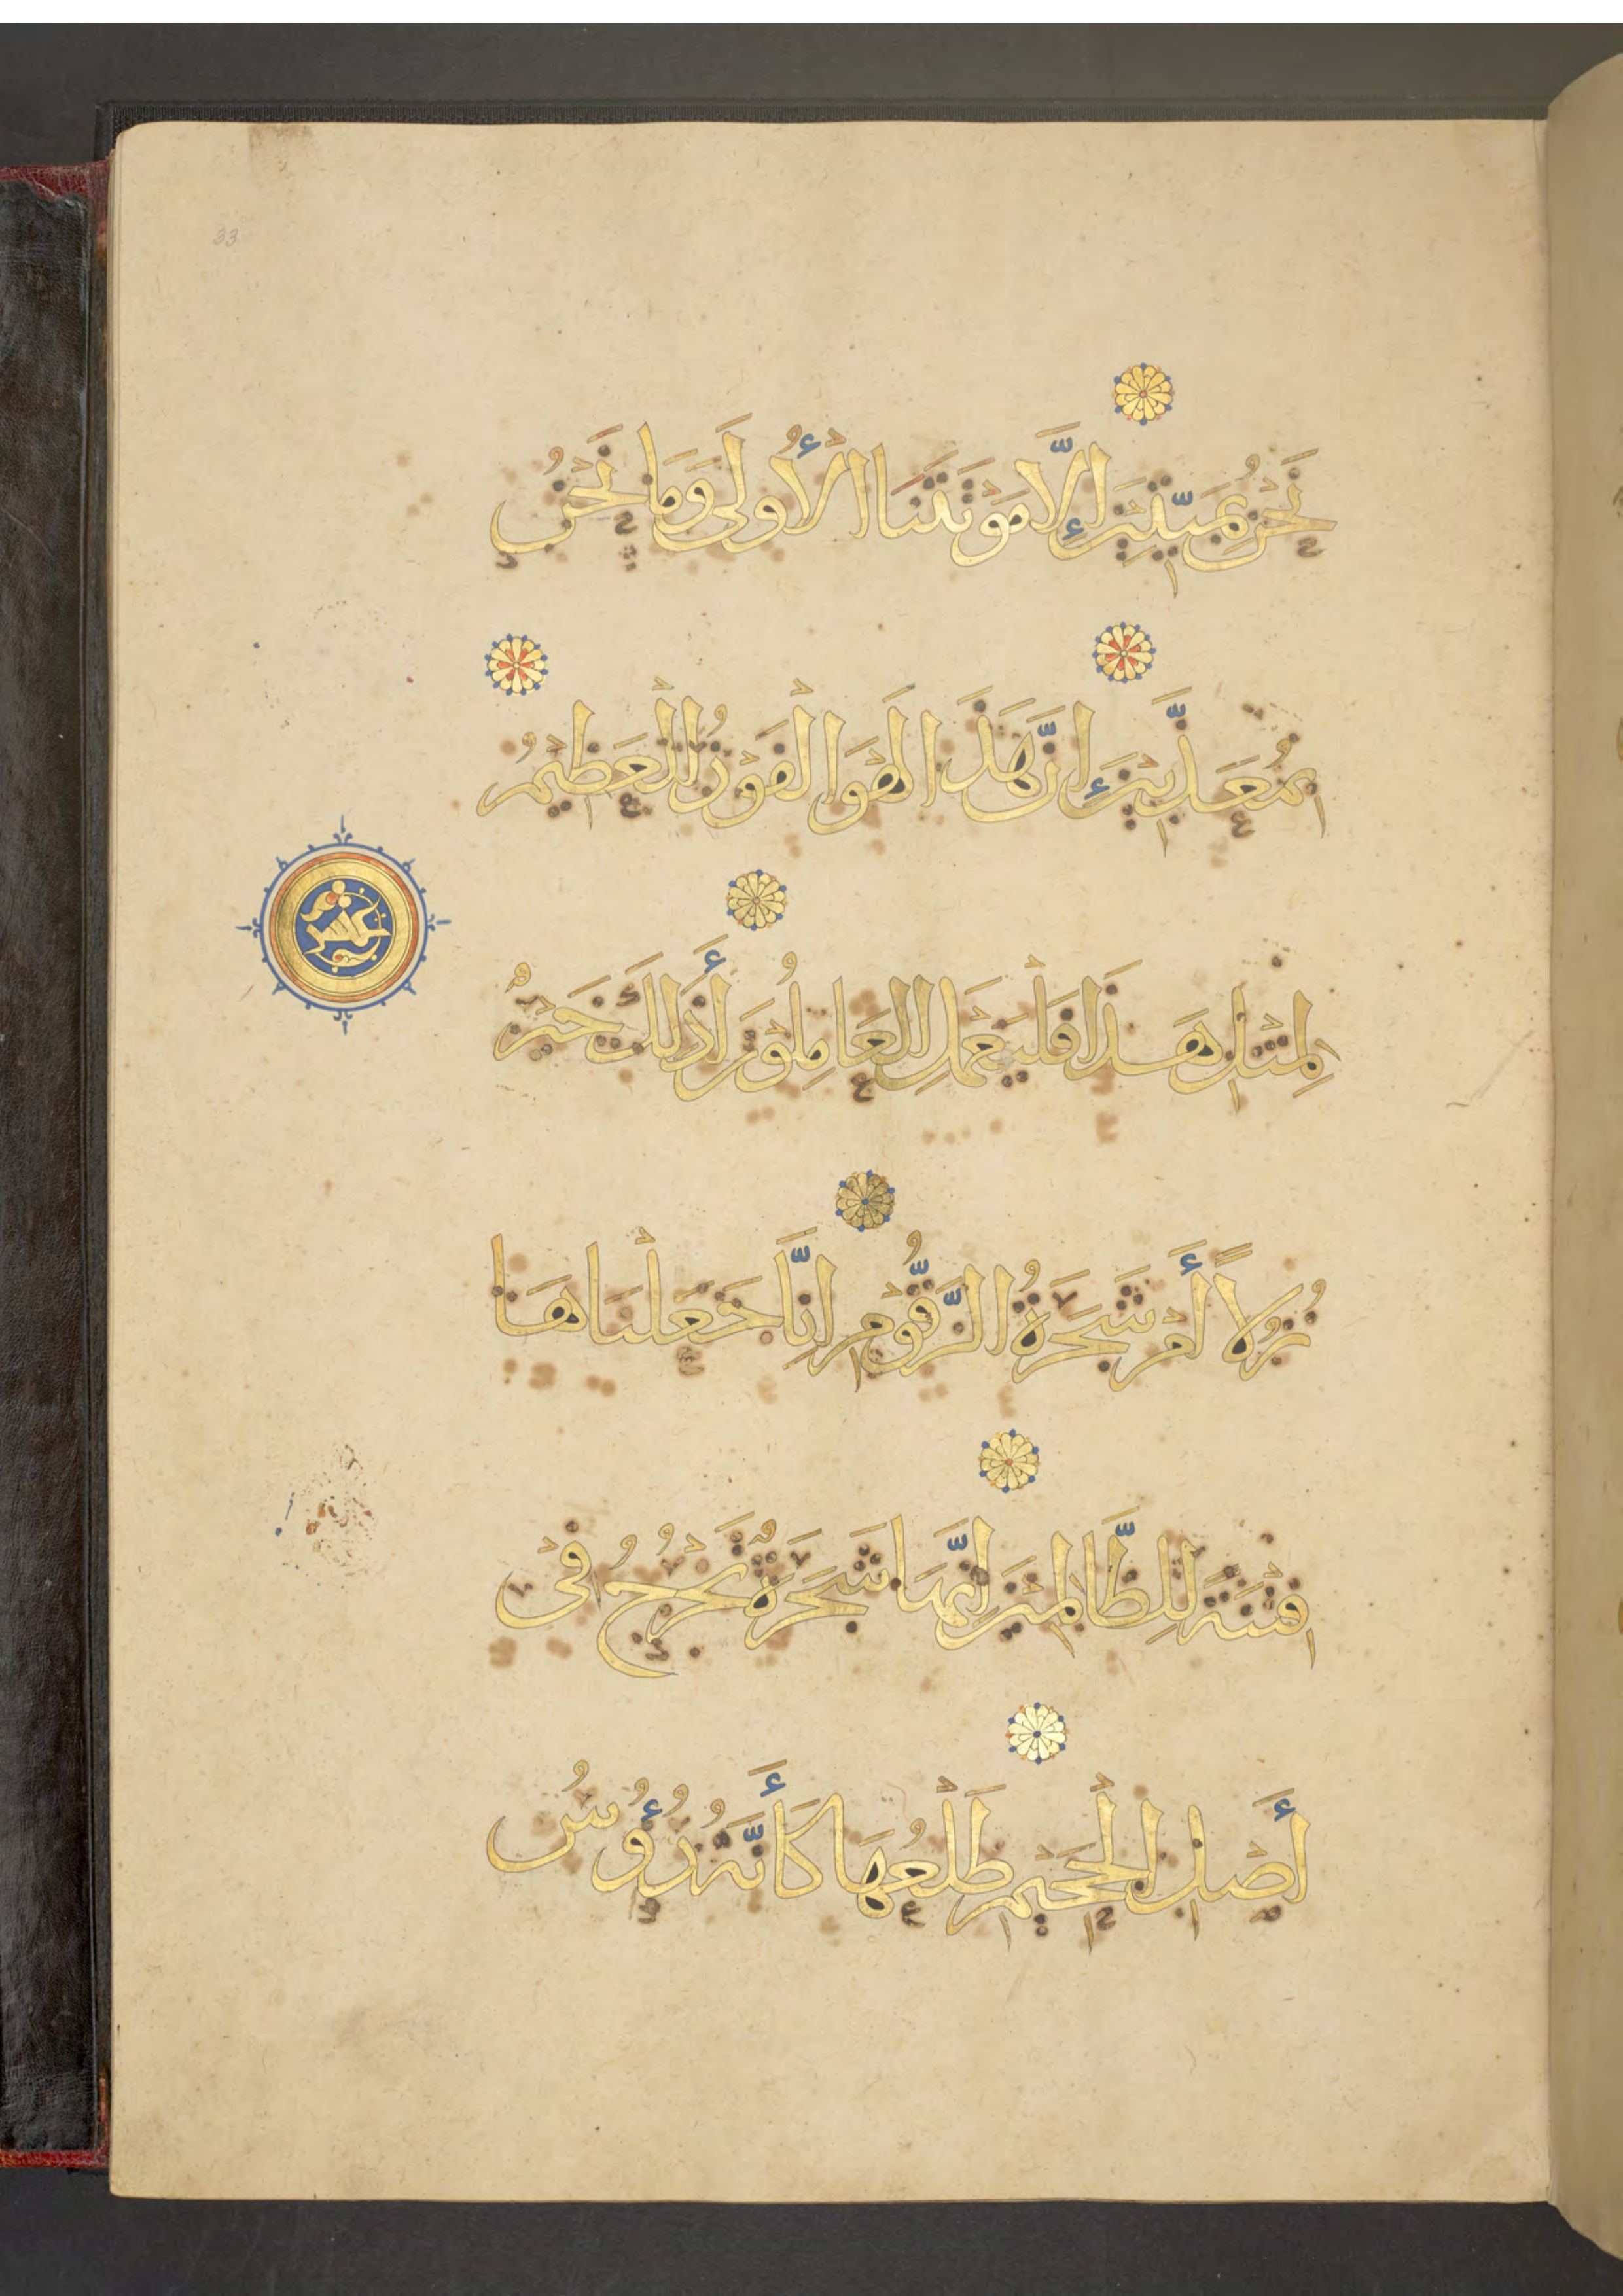 33
نَحْنُ بِمَيِّتِينَ إِلَّا مَوْتَتَنَا الْأُولَى وَمَا نَحْنُ
بِمُعَذَّبِينَ إِنَّ هَذَا لَهُوَ الْفَوْزُ الْعَظِيمُ
لِمِثْلِ هَذَا فَلْيَعْمَلِ الْعَامِلُونَ أَذَلِكَ خَيْرٌ
نُزُلًا أَمْ شَجَرَةُ الزَّقُّومِ إِنَّا جَعَلْنَاهَا
فِتْنَةً لِلظَّالِمِينَ إِنَّهَا شَجَرَةٌ تَخْرُجُ فِي
أَصْلِ الْجَحِيمِ طَلْعُهَا كَأَنَّهُ رُؤُسُ